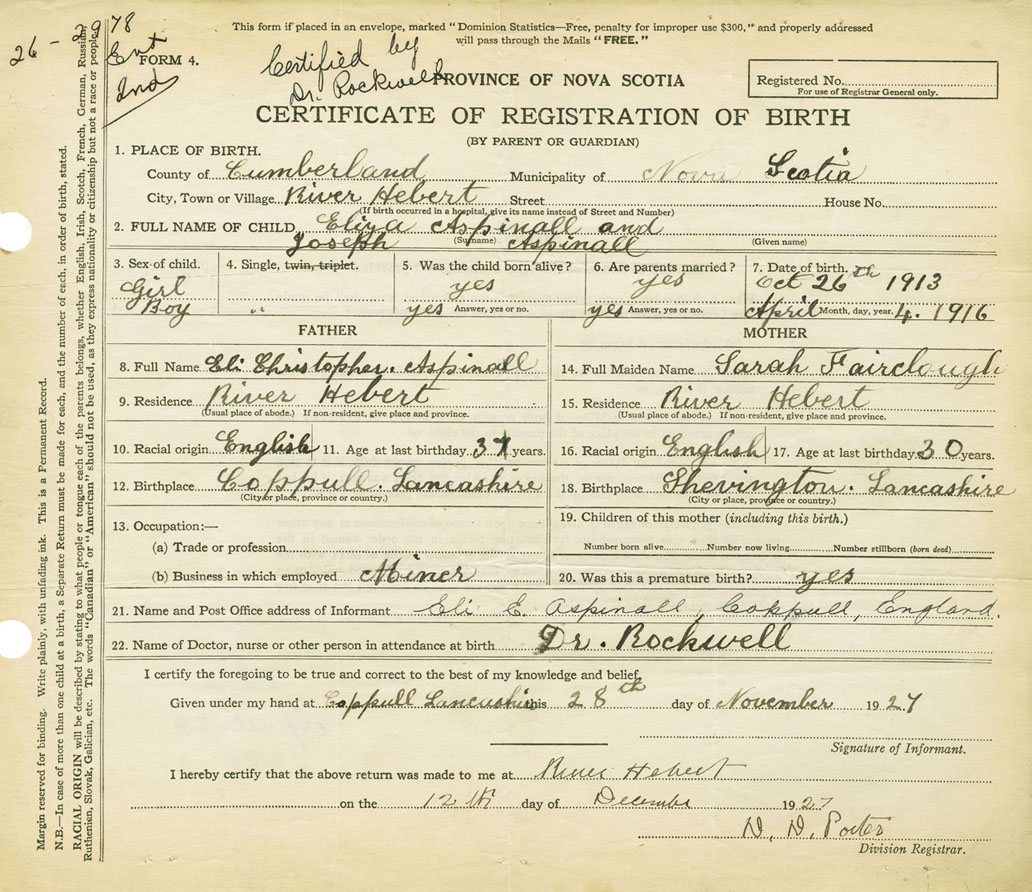 This form if placed in an envelope, marked "Dominion Statistics—Free, penalty for improper use $300," and properly addressed
will pass through the Mails "FREE."
26 - 2978
Ent
Ind
FORM 4.
Certified by
Dr. Rockwell
PROVINCE OF NOVA SCOTIA
Registered No.
For use of Registrar General only.
CERTIFICATE OF REGISTRATION OF BIRTH
(BY PARENT OR GUARDIAN)
1. PLACE OF BIRTH.
County of Cumberland Municipality of Nova Scotia
City, Town or Village River Hebert Street House No.
(If birth occurred in a hospital, give its name instead of Street and Number)
2. FULL NAME OF CHILD Eliza Aspinall and
Joseph (Surname) Aspinall (Given name)
3. Sex of child. 4. Single, twin, triplet. 5. Was the child born alive? 6. Are parents married? 7. Date of birth.
Girl yes yes Oct 26th 1913
Boy " yes Answer, yes or no. yes Answer, yes or no. April Month, day, year. 4. 1916
FATHER MOTHER
8. Full Name Eli Christopher Aspinall 14. Full Maiden Name Sarah Fairclough
9. Residence River Hebert 15. Residence River Hebert
(Usual place of abode.) If non-resident, give place and province. (Usual place of abode.) If non-resident, give place and province.
10. Racial origin English 11. Age at last birthday. years. 16. Racial origin English 17. Age at last birthday. 30 years.
12. Birthplace Coppull. Lancashire 18. Birthplace Shevington. Lancashire
(City or place, province or country.) (City or place, province or country.)
13. Occupation:— 19. Children of this mother (including this birth.)
(a) Trade or profession Number born alive Number now living Number stillborn (born dead)
(b) Business in which employed Miner 20. Was this a premature birth? yes
21. Name and Post Office address of Informant Eli E. Aspinall, Coppull, England.
22. Name of Doctor, nurse or other person in attendance at birth Dr. Rockwell
I certify the foregoing to be true and correct to the best of my knowledge and belief.
Given under my hand at Coppull Lancashire this 28th day of November 1927
Signature of Informant.
I hereby certify that the above return was made to me at River Hebert
on the 12th day of Decembe 1927
D. D. Porter
Division Registrar.
Margin reserved for binding. Write plainly, with unfading ink. This is a Permanent Record.
N.B.—In case of more than one child at a birth, a Separate Return must be made for each, and the number of each, in order of birth, stated.
RACIAL ORIGIN will be described by stating to what people or tongue each of the parents belongs, whether English, Irish, Scotch, French, German, Russian,
Ruthenian, Slovak, Galician, etc. The words "Canadian" or "American" should not be used, as they express nationality or citizenship but not a race or people.